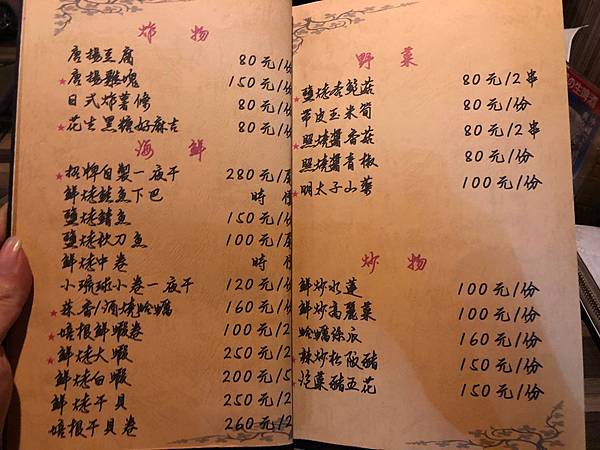 炸 物
唐揚豆腐 80元/份
★唐揚雞塊 150元/份
日式炸薯條 80元/份
★花生黑糖好麻吉 80元/份
海 鮮
★招牌自製一夜干 280元/
鮮烤鮭魚下巴 時
鹽烤鯖魚 150元/份
鹽烤秋刀魚 100元/
鮮烤中卷 時
小琉球小卷一夜干 120元/份
★蒜香/酒燒蛤蠣 160元/份
★培根鮮蝦卷 100元/2
★鮮烤大蝦 250元/2
鮮烤白蝦 200元/5
鮮烤干貝 250元/2
培根干貝卷 260元/2
野 菜
★鹽烤杏鮑菇 80元/2串
帶皮玉米筍 80元/份
★照燒醬香菇 80元/2串
照燒醬青椒 80元/份
★明太子山藥 100元/份
炒 物
鮮炒水蓮 100元/份
鮮炒高麗菜 100元/份
蛤蠣絲瓜 160元/份
★辣炒松阪豬 150元/份
泡菜豬五花 150元/份